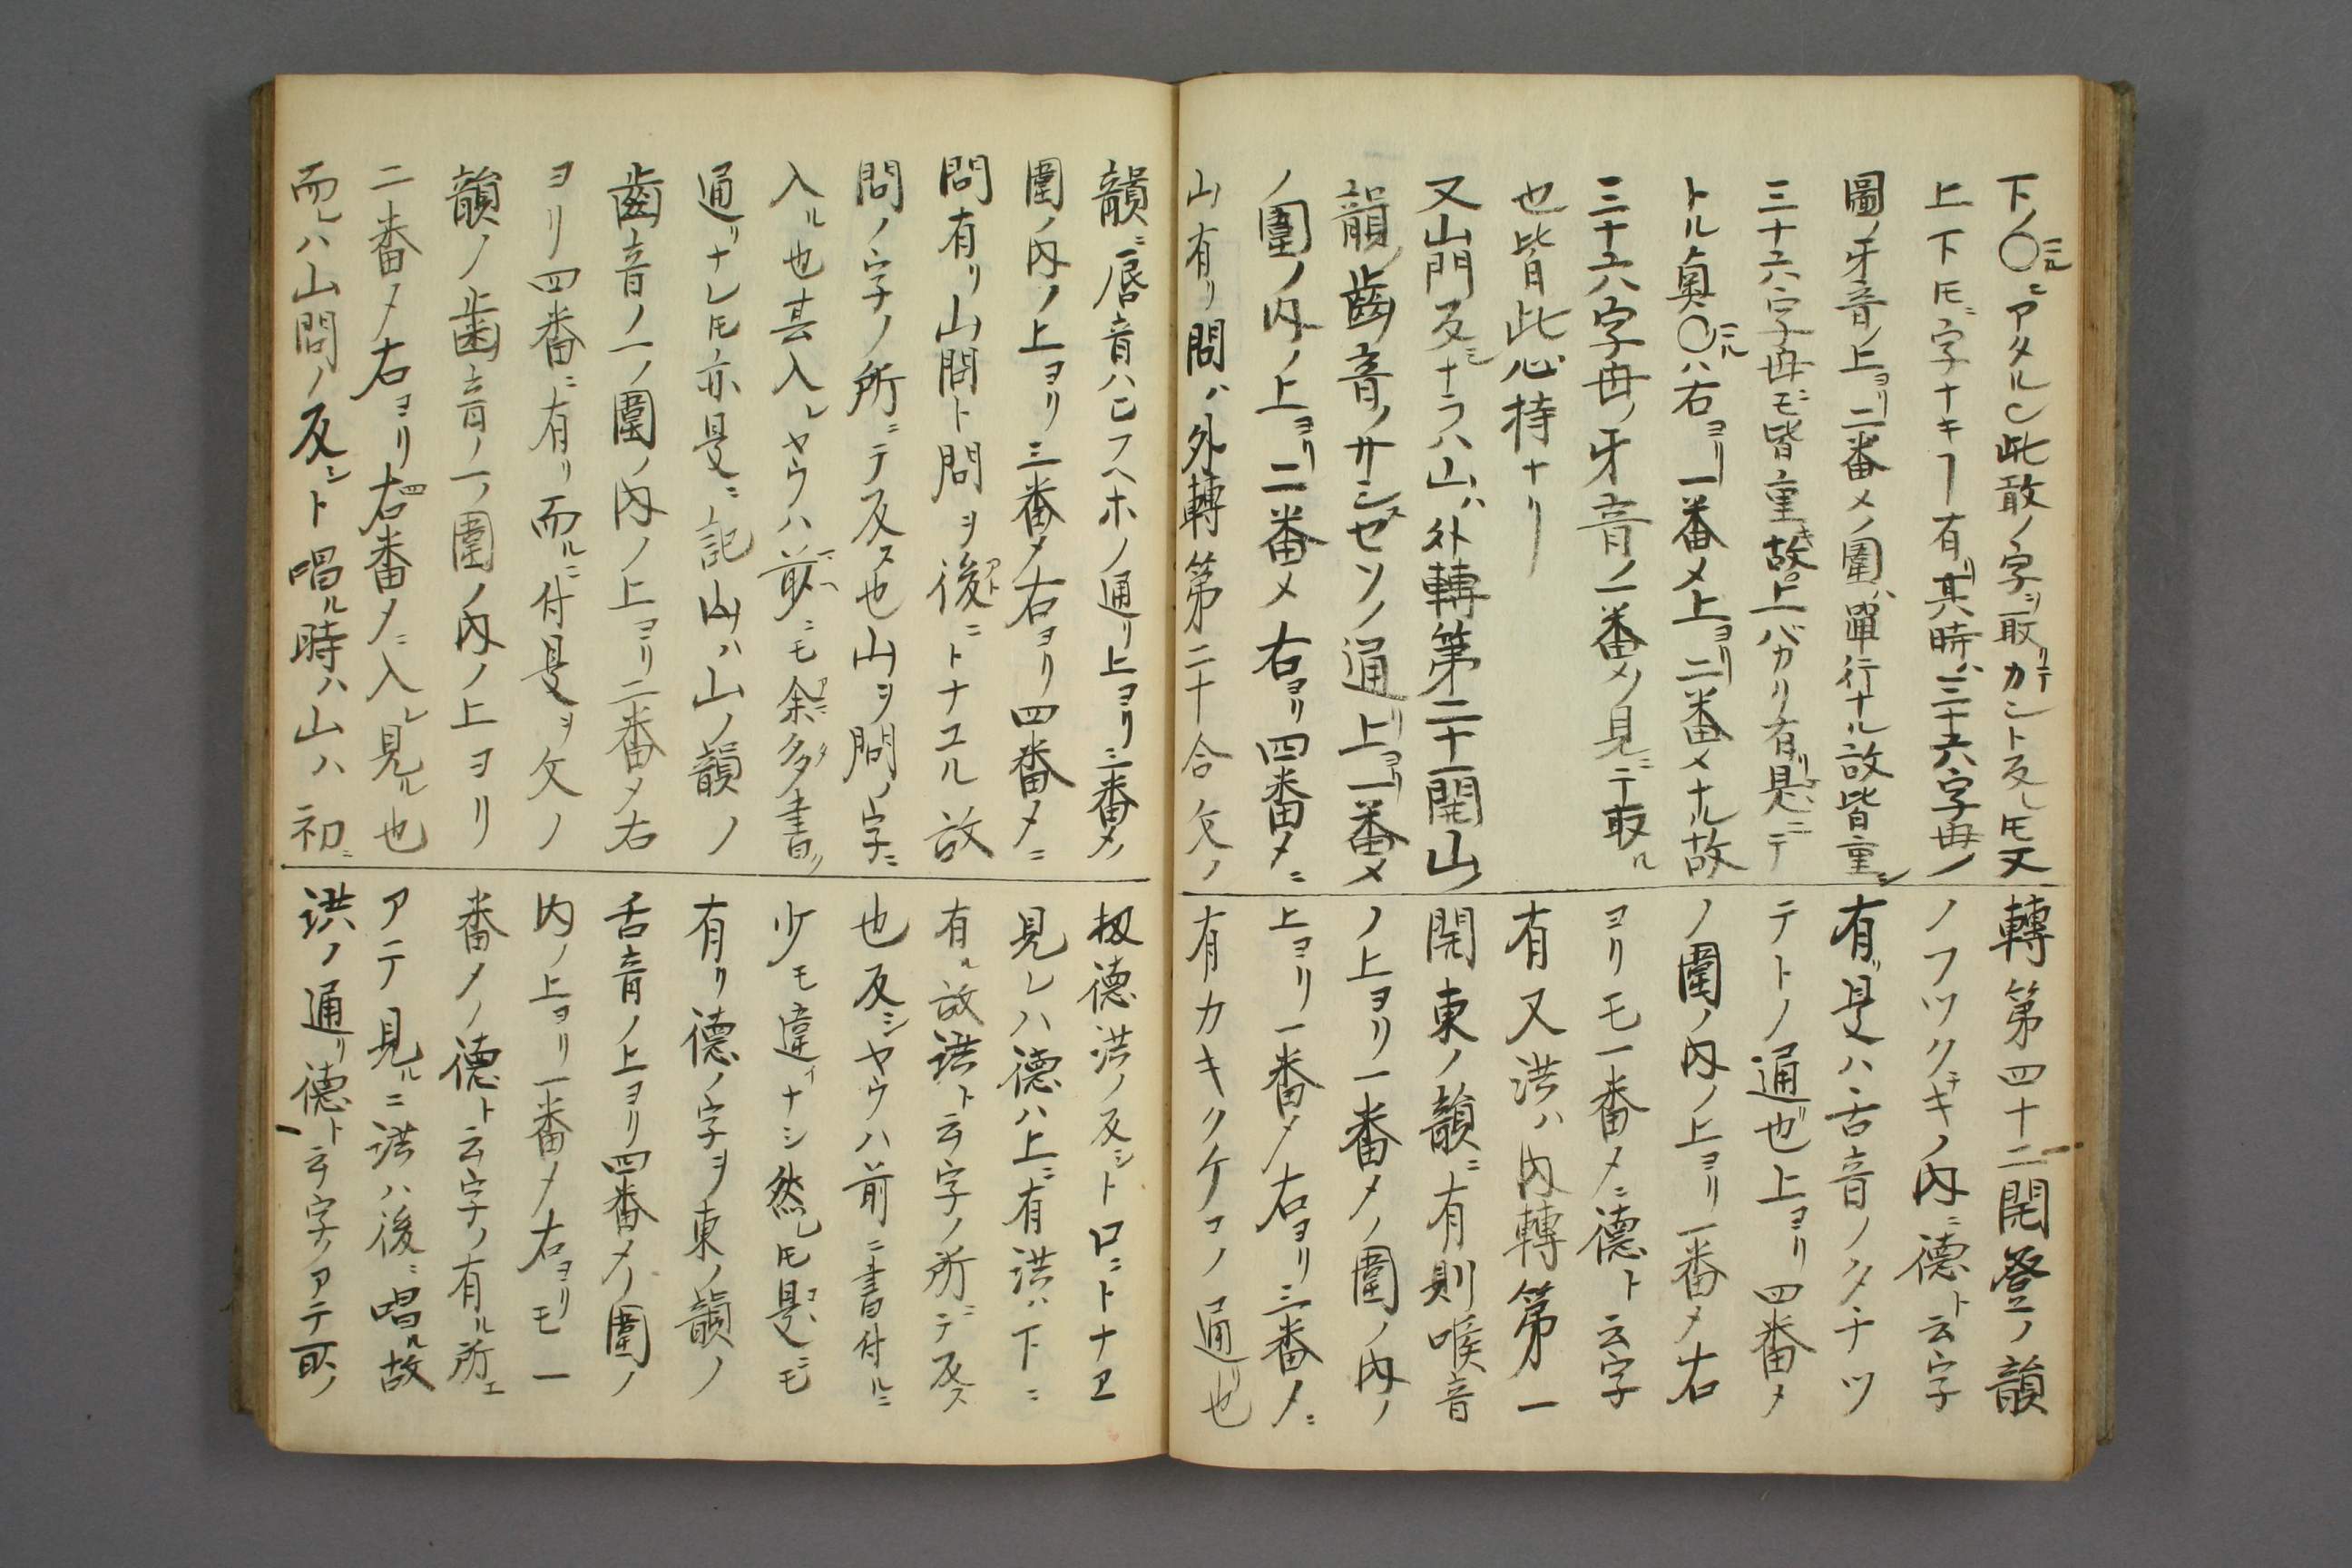 下ノ〇ニアタル也此敢ノ字ヲ取リテカント反レ𪜈又
上下𪜈ニ字ナキヿ有リ其時ハ三十六字母ノ
圖ノ牙音ノ上ヨリ二番メノ圍ハ單行ナル故皆重シ
三十六字母ニモ皆重キ故上バカリ有リ是ニテ
トル奥〇ハ右ヨリ一番メ上ヨリ二番メナル故
三十六字母ノ牙音ノ一番メノ見ニテ取ル
也皆此心持ナリ
又山門反シナラハ山ハ外轉第二十一開山
韻ノ齒音ノサシスセソノ通リ上ヨリ一番メ
ノ圍ノ内ノ上ヨリ二番メ右ヨリ四番メニ
山有リ問ハ外轉第二十合欠ノ
韻ニ唇音ハヒフヘホノ通リ上ヨリ三番メノ
圍ノ内ノ上ヨリ三番メ右ヨリ四番メニ
問有リ山問ト問ヲ後ニトナエル故
問ノ字ノ所ニテ反ス也山ヲ問ノ字ニ
入ル也其入レヤウハ前ニモ余多書ノ
通リナレ𪜈亦是ニ記山ハ山ノ韻ノ
齒音ノ一ノ圍ノ内ノ上ヨリ二番メ右
ヨリ四番ニ有リ而ルニ付是ヲ欠ノ
韻ノ歯音ノ一ノ圍ノ内ノ上ヨリ
二番メ右ヨリ四番メニ入レ見ル也
而レハ山問ノ反シト唱ル時ハ山ハ初ニ
轉第四十二開登ノ韻
ノフツクチキノ内ニ德ト云字
有リ是ハ舌音ノタチツ
テトノ通也上ヨリ四番メ
ノ圍ノ内ノ上ヨリ一番メ右
ヨリモ一番メニ德ト云字
有又洪ハ内轉第一
開東ノ韻ニ有則喉音
ノ上ヨリ一番メノ圍ノ内ノ
上ヨリ一番メ右ヨリ三番メニ
有カキクケコノ通也
扨德洪ノ反シト口ニトナエ
見レハ德ハ上ニ有洪ハ下ニ
有ル故洪ト云字ノ所ニテ反ス
也反シヤウハ前ニ書付ルニ
少モ違イナシ然レ𪜈是ニモ
有リ德ノ字ヲ東ノ韻ノ
舌音ノ上ヨリ四番メノ圍ノ
内ノ上ヨリ一番メ右ヨリモ一
番メノ德ト云字ノ有ル所エ
アテ見ルニ洪ハ後ニ唱ル故
洪ノ通リ德ト云字ノアテ所ノ